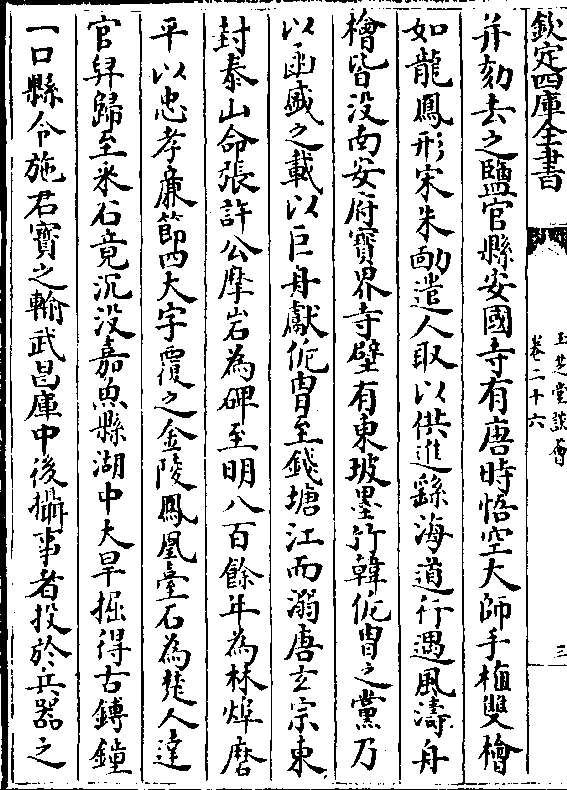 欽定四庫全書
玉芝堂談薈
卷二十六
三
并刻去之鹽官縣安國寺有唐時悟空大師手植雙檜
如龍鳳形宋朱勔遣人取以供進繇海道行遇風濤舟
檜皆没南安府寶界寺壁有東坡墨竹韓侂胄之黨乃
以函盛之載以巨舟獻侂胄至錢塘江而溺唐玄宗東
封泰山命張許公摩岩為碑至明八百餘年為林焯磨
平以忠孝廉節四大字覆之金陵鳳凰臺石為楚人達
官舁歸至采石竟沉没嘉魚縣湖中大旱掘得古鎛鐘
一口縣令施君寳之輸武昌庫中後攝事者投於兵器之